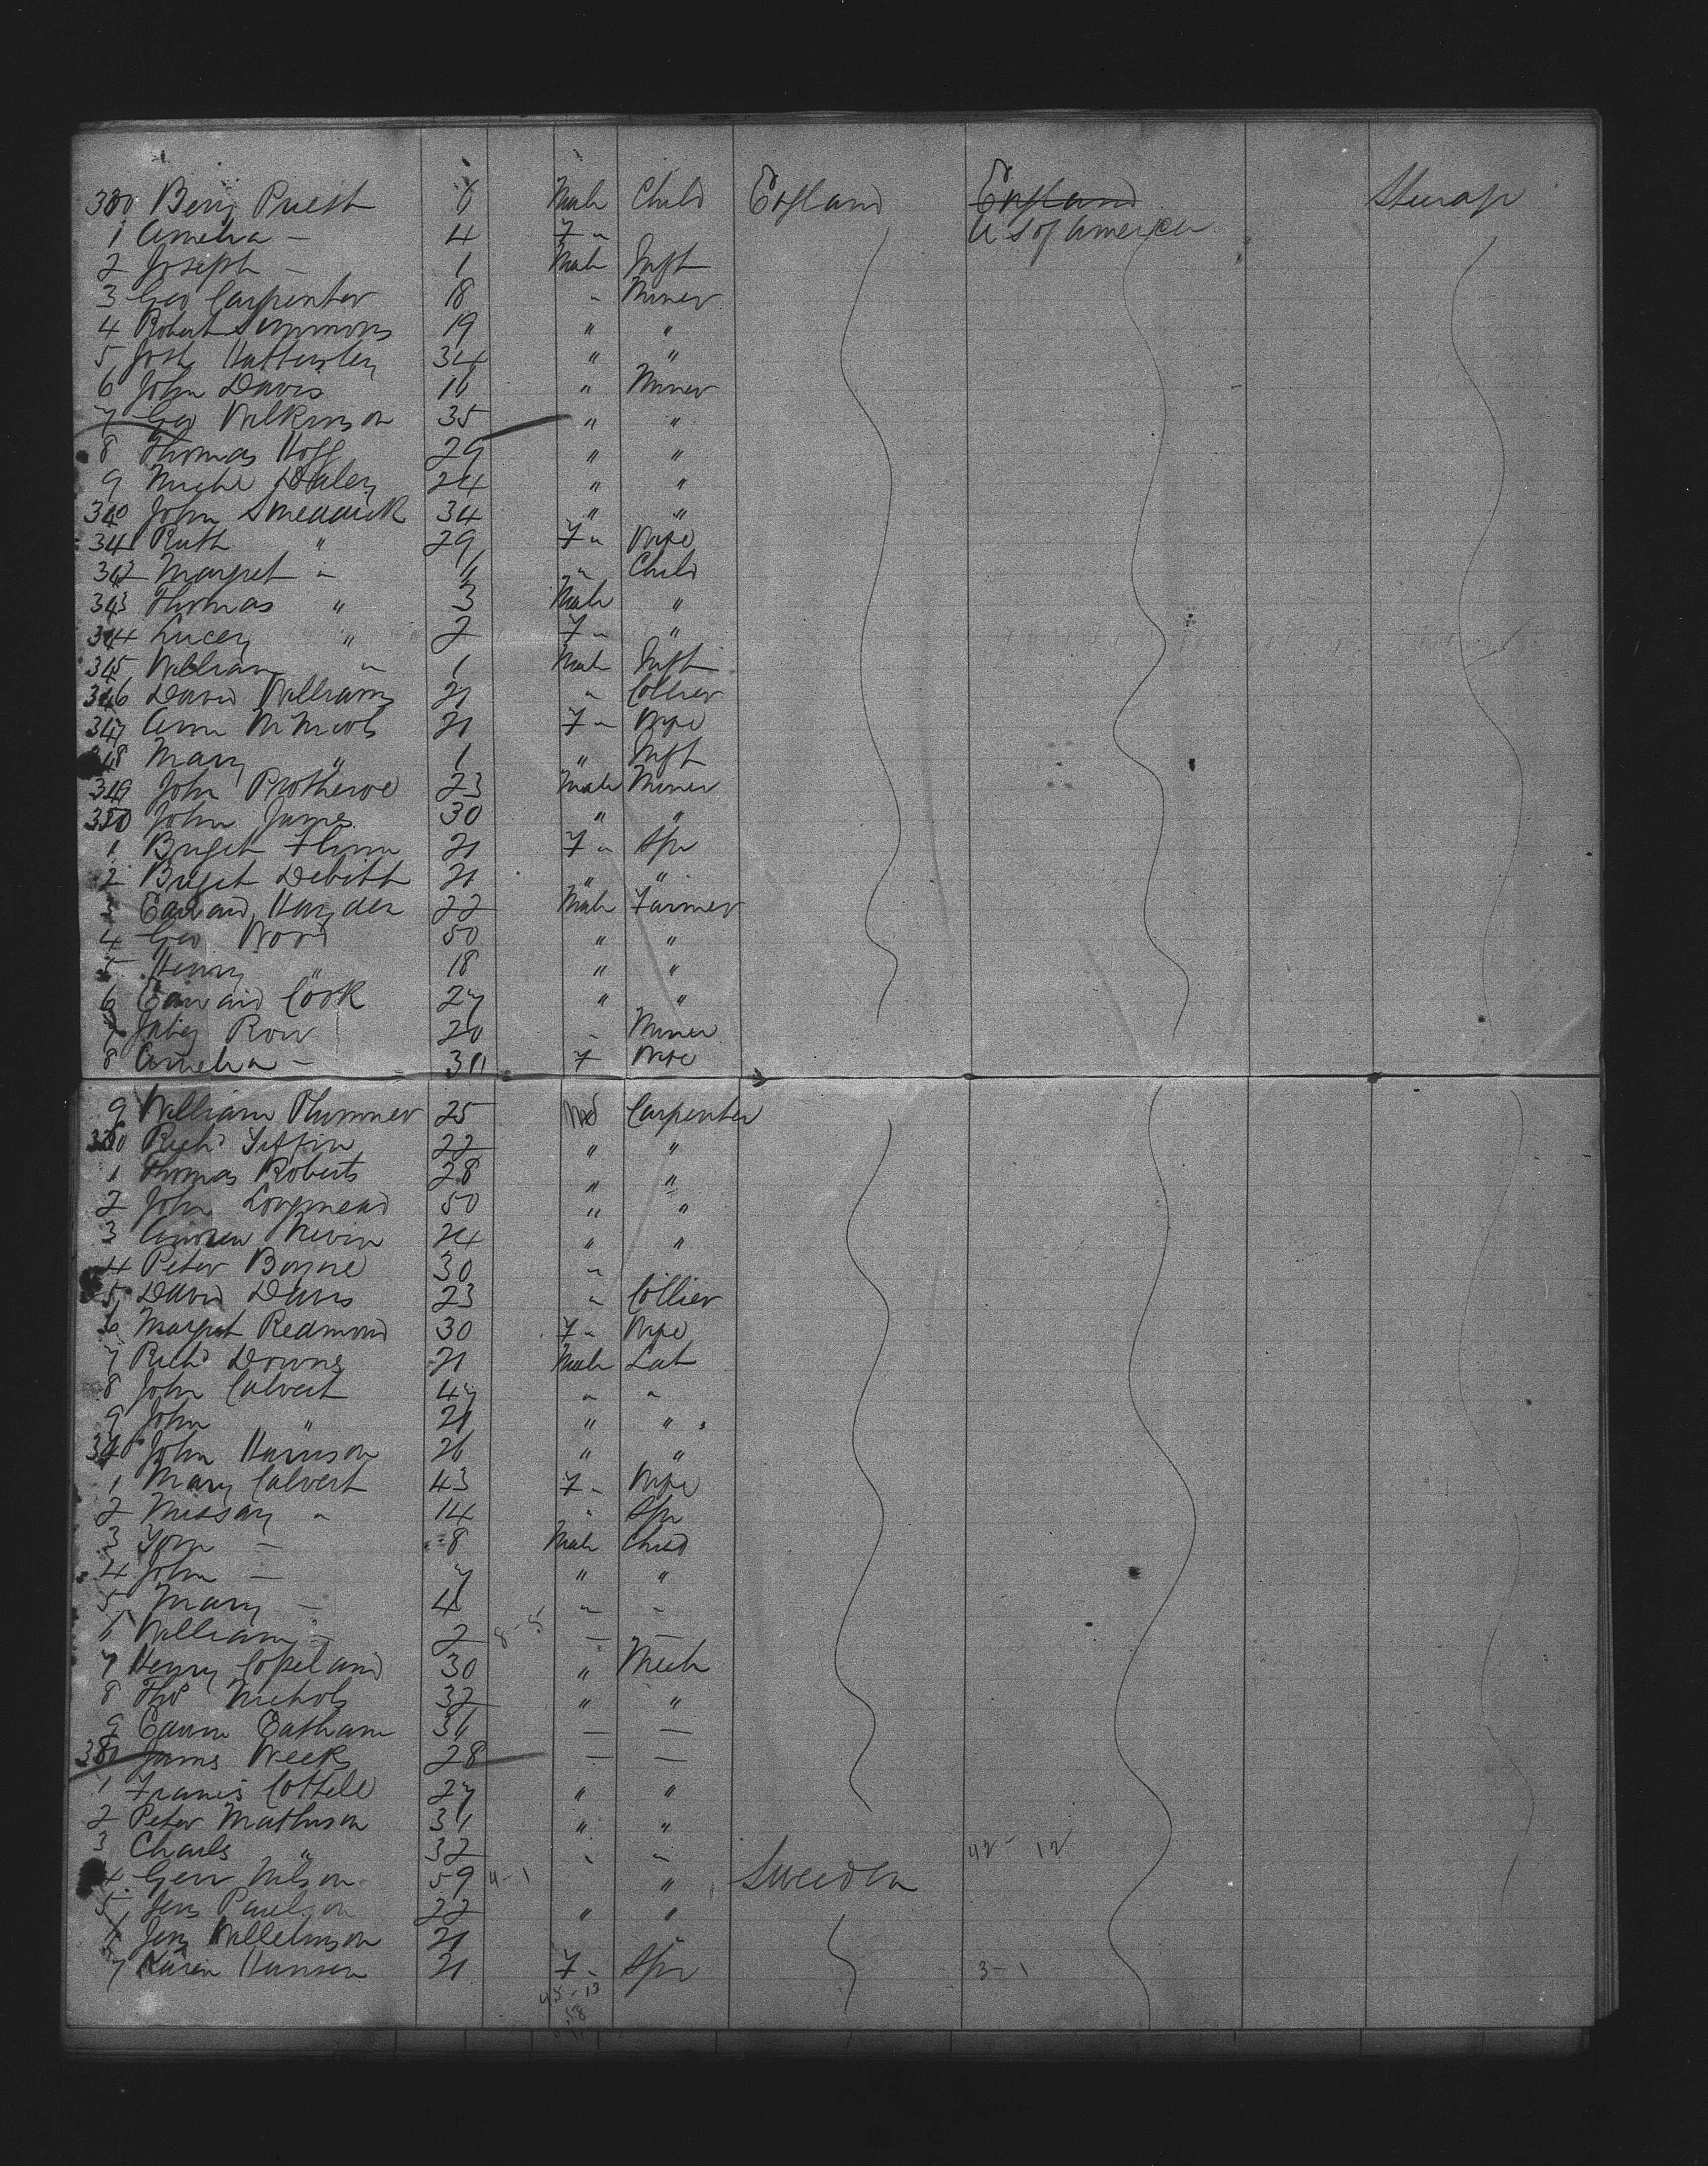 330 Benj Priest 6 Male Child England England Steerage
U S of America
1 Amelia — 4 F "
2 Joseph — 1 Male Inft
3 Geo Carpenter 18 " Miner
4 Robert Simmons 19 " "
5 Josh Hattersley 34 " "
6 John Davis 16 " Miner
7 Geo Wilkinson 35 " "
8 Thomas Hoff 29 " "
9 Michl Daley 24 " "
340 John Smeddick 34 " "
341 Ruth " 29 F " Wife
342 Margret " Child
343 Thomas " 3 Male "
344 Lucey " 2 F " "
345 William " 1 Male Inft
346 David Williams 21 " Collier
347 Ann McNicols 21 F " Wife
348 Mary " 1 " Inft
349 John Protheroe 23 Male Miner
350 John James 30 " "
1 Briget Flinn 21 F " Spr
2 Briget Debitt 21 " "
3 Edward Hayden 22 Male Farmer
4 Geo Word 50 " "
5 Henry " 18 " "
6 Edward Cook 27 " "
7 Jabez Row 20 " Miner
8 Amelia — 30 F Wife
9 William Plummer 25 Carpenter
360 Richd Tiffin 22 " "
1 Thomas Roberts 28 " "
2 John Longmead 50 " "
3 Andrew Nevin 24 " "
4 Peter Boyne 30 "
5 David Davis 23 " Collier
6 Margret Redmond 30 F " Wife
7 Richd Downs 21 Male Lab
8 John Calvert 47 " "
9 John " 21 " "
370 John Harrison 26 " "
1 Mary Calvert 43 F " Wife
2 " 14 " Spr
3 Tom — 8 Male Child
4 John — 7 " "
5 Mary — 4 " "
6 William — 2 8-5 — —
7 Henry Copeland 30 " Mech
8 Thos Nichols 32 " "
9 Edwin Eatham 36 — —
380 James Weeks 28 — —
1 Francis Cottell 27 " "
2 Peter Mathison 31 " "
3 Charls " 32 " " 42 - 12
4 Nilson 59 4-1 " Sweeden
5 Jens Paulson 22 " "
6 Jens Willelmson 21
7 Karen Hansen 21 F " Spr 3-1
45-13
58